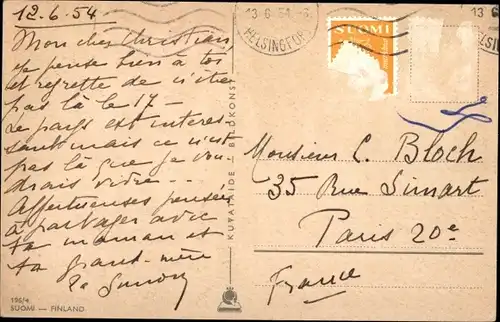 12.6.54
Mon cher Christian,
je pense bien à toi
et regrette de n'être
pas là le 17 -
Le pays est interes-
sant mais ce n'est
pas là que je vou-
drais vivre --
Affectueuses pensées
à partager avec
ta maman et
ta grand-mère
KUVATAIDE / BILDKONST
13.6.54
HELSINGFORS
SUOMI
13
Monsieur C. Bloch
35 Rue Simart
Paris 20e
France
195/4
SUOMI — FINLAND